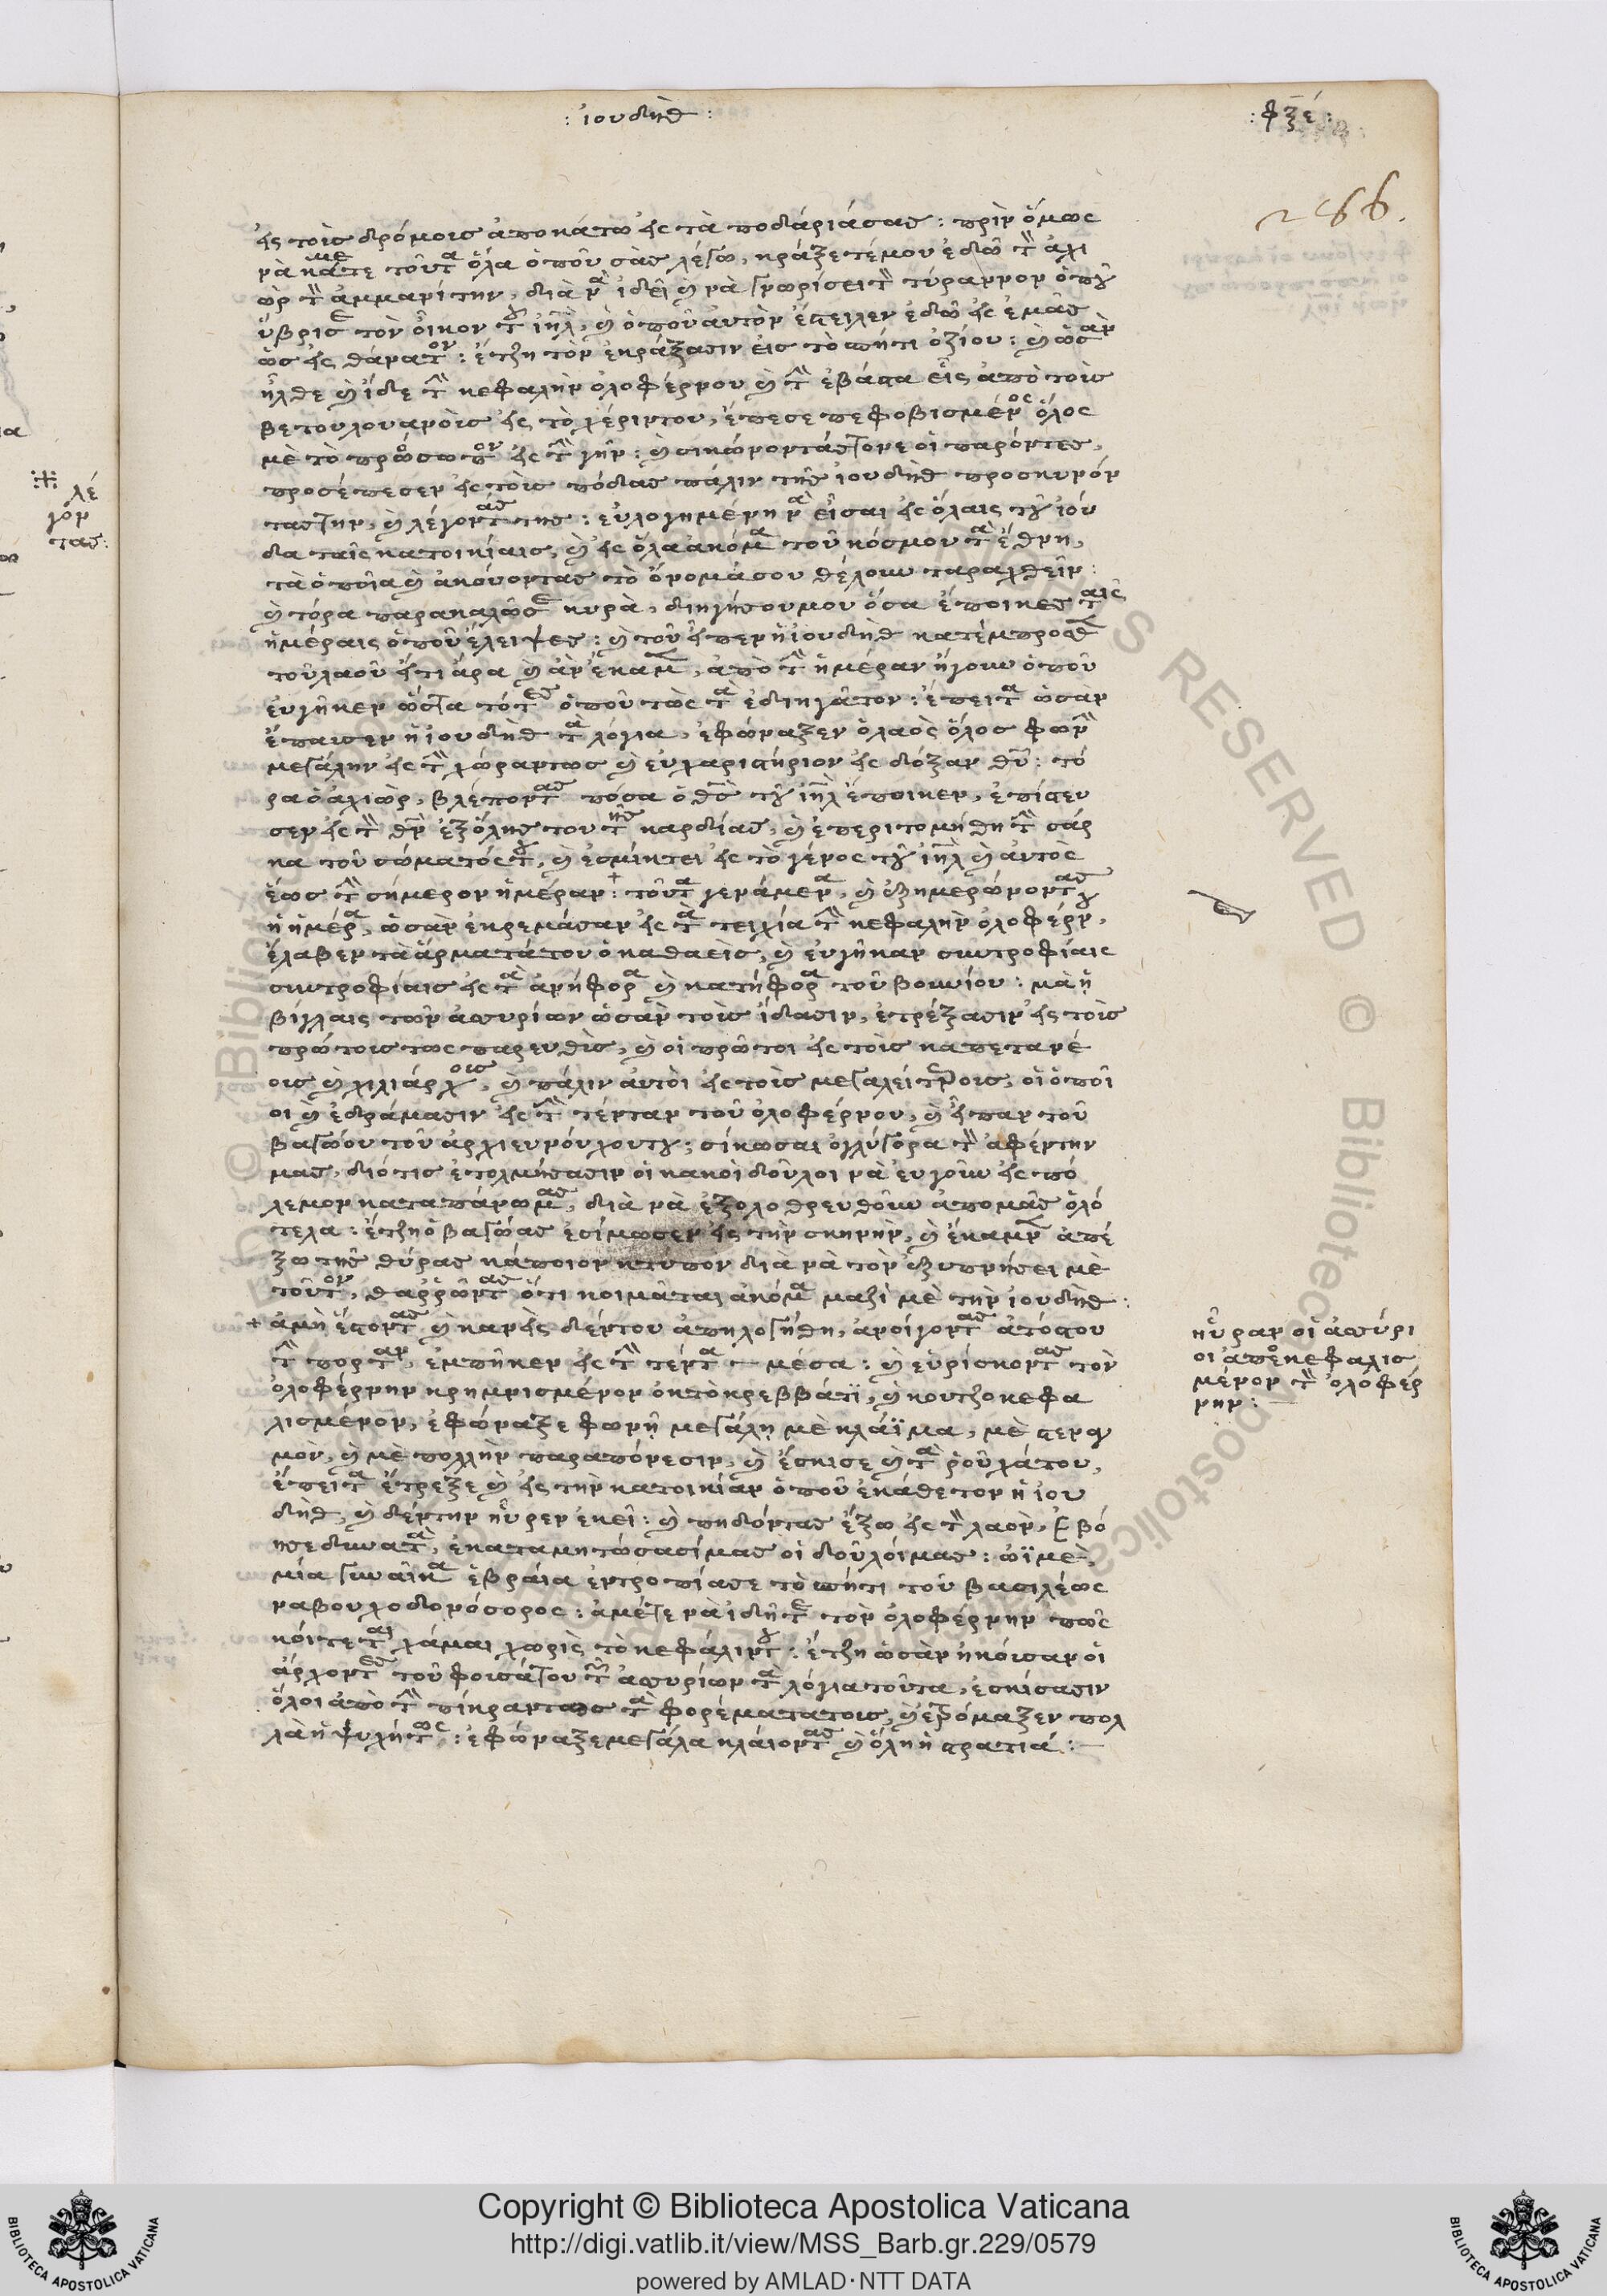 : ἰουδὴθ :
: φξέ :
266.
εἰς τοὶς δρόμοις ἀποκάτω εἰς τὰ ποδάριάσας : πρὶν ὅμως
νὰ κάμετε τοῦτα ὅλα ὁποῦ σᾶς λέγω, κράξετέμου ἐδῶ τὸν ἀχι
ὼρ τὸν ἀμμανίτην, διὰ νὰ ἰδεῖ καὶ νὰ γνωρίσει τὸν τύραννον ὁποῦ
ὕβρισε τὸν οἶκον τοῦ ἰηλ, καὶ ὁποῦ αὐτὸν ἔστειλεν ἐδῶ εἰς ἐμᾶς
ὡς εἰς θάνατον : ἔτζη τὸν ἐκράξασιν εἰς τὸ σπήτι ὀζίου : καὶ ὡσὰν
ἦλθε καὶ ἶδε τὴν κεφαλὴν ὀλοφέρνου καὶ τὴν ἐβάστα εἷς ἀπὸ τοὶς
βετουλουανοὶς εἰς τὸ χέριντου, ἔπεσε πεφοβισμένος ὅλος
μὲ τὸ πρόσωπον εἰς τὴν γῆν : καὶ σικώνοντάςτονε οἱ παρόντες,
προσέπεσεν εἰς τοὶς πόδας πάλιν τῆς ἰουδὴθ προσκυνόν
τάςτην, καὶ λέγοντάς της : εὐλογημένη νὰ εἶσαι εἰς ὅλαις τοῦ ἰού
δα ταῖς κατοικίαις, καὶ εἰς ὅλα ἀκόμα τοῦ κόσμου τὰ ἔθνη,
τὰ ὁποῖα καὶ ἀκούοντας τὸ ὄνομάσου θέλουν ταραχθεῖν :
καὶ τόρα παρακαλῶσε κυρὰ, διηγήσουμου ὅσα ἐποίκες ταῖς
ἡμέραις ὁποῦ ἔλειψες : καὶ τοῦ εἶπεν ἡ ἰουδὴθ κατέμπροσθεν
τοῦ λαοῦ εἴτι ἄρα καὶ ἂν ἔκαμεν, ἀπὸ τὴν ἡμέραν ἤγουν ὁποῦ
εὐγῆκεν ὥστα τότες ὁποῦ τῶς τὰ ἐδιηγᾶτον : ἔπειτα ὡσὰν
ἔπαυσεν ἡ ἰουδὴθ τὰ λόγια, ἐφώναξεν ὁ λαὸς ὅλος φωνὴν
μεγάλην εἰς τὴν χώραντως καὶ εὐχαριστήριον εἰς δόξαν θῦ : τό
ρα ὁ ἀχιὼρ, βλέποντας πόσα ὁ θς τοῦ ἰηλ ἐποίκεν, ἐπίστευ
σεν εἰς τὸν θν ἐξόλης του τῆς καρδίας, καὶ ἐπεριτομήθη τὴν σάρ
κα τοῦ σώματός του, καὶ ἐσμίκτει εἰς τὸ γένος τοῦ ἰηλ καὶ αὐτὸς
ἕως τὴν σήμερον ἡμέραν : + τοῦτα γενάμενα, καὶ ἐξημερώνοντας
ἡ ἡμέρα, ὡσὰν ἐκρεμάσαν εἰς τὰ τειχία τὴν κεφαλὴν ὀλοφέρν,
ἔλαβεν τὰ ἄρματάτου ὁ καθαεὶς, καὶ εὐγῆκαν συντροφίαις
συντροφίαις εἰς τὰ ἀνήφορα καὶ κατήφορα τοῦ βουνίου : μὰ ἡ
βίγλαις τῶν ἀσυρίων ὡσὰν τοὶς ἴδασιν, ἐτρέξασιν εἰς τοὶς
πρώτοις τως παρευθὶς, καὶ οἱ πρῶτοι εἰς τοὶς καπετανέ
οις καὶ χιλιάρχοις, καὶ πάλιν αὐτοὶ εἰς τοὶς μεγαλείτεροις, οἱ ὁποῖ
οι καὶ ἐδράμασιν εἰς τὴν τένταν τοῦ ὀλοφέρνου, καὶ εἶπαν τοῦ
βαγώου τοῦ ἀρχιευνούχουτου ; σίκωσαι ὀγλύγορα τὸν ἀφέντην
μας, διότις ἐτολμήσασιν οἱ κακοὶ δοῦλοι νὰ εὐγοῦν εἰς πό
λεμον καταπάνωμας, διὰ νὰ ἐξολοθρευθοῦν ἀπομᾶς ὁλό
τελα : ἔτζη ὁ βαγώας ἐσίμωσεν εἰς τὴν σκηνὴν, καὶ ἔκαμεν ἀπέ
ξω τῆς θύρας κάποιον κτύπον διὰ νὰ τὸν ἐξυπνήσει μὲ
τοῦτον, θαῤῥῶντας ὅτι κοιμᾶται ἀκόμα μαζὶ μὲ τὴν ἰουδὴθ :
+ ἀμὴ ἔστοντας καὶ κανεὶς δέντου ἀπηλογήθη, ἀνοίγοντας ἀτόςου
τὴν πόρταν, ἐμπῆκεν εἰς τὴν τέντα μέσα : καὶ εὑρίσκοντας τὸν
ὀλοφέρνην κρημνισμένον ὀκτὸ κρεββάτϊ, καὶ κουτζοκεφα
λισμένον, ἐφώναξε φωνὴ μεγάλη μὲ κλάϊμα, μὲ στεναγ
μὸν, καὶ μὲ πολλὴν παραπόνεσιν, καὶ ἔσκισε καὶ τὰ ῥοῦχάτου,
ἔπειτα ἔτρεξε καὶ εἰς τὴν κατοικίαν ὁποῦ ἐκάθετον ἡ ἰου
δὴθ, καὶ δέντην ηὗρεν ἐκεῖ : καὶ πηδόντας ἔξω εἰς τὸν λαὸν, ἐβό
ησε δυνατὰ, ἐκαταμητώσασίμας οἱ δοῦλοίμας : ὠϊμὲ,
μία γυναῖκα ἑβραία ἐντροπίασε τὸ σπήτι τοῦ βασιλέως
ναβουχοδονόσορος : ἀμέτε νὰ ἰδῆτε τὸν ὀλοφέρνην πῶς
κοίτεται χάμαι χωρὶς τὸ κεφάλιντου : ἔτζη ὡσὰν ἠκούσαν οἱ
ἄρχοντες τοῦ φουσάτου τῶν ἀσυρίων τὰ λόγια τοῦτα, ἐσκίσασιν
ὅλοι ἀπὸ τὴν πίκραντως τὰ φορέματατους, καὶ ἐτρόμαξεν πολ
λὰ ἡ ψυχήτως : ἐφώναξε μεγάλα κλάιοντας καὶ ὅλη ἡ στρατιά :
ηὗραν οἱ ἀσύρι
οι ἀποκεφαλισ
μένον τὸν ὀλοφέρ
νην :
λέ
γον
τας :
Copyright © Biblioteca Apostolica Vaticana
http://digi.vatlib.it/view/MSS_Barb.gr.229/0579
powered by AMLAD·NTT DATA